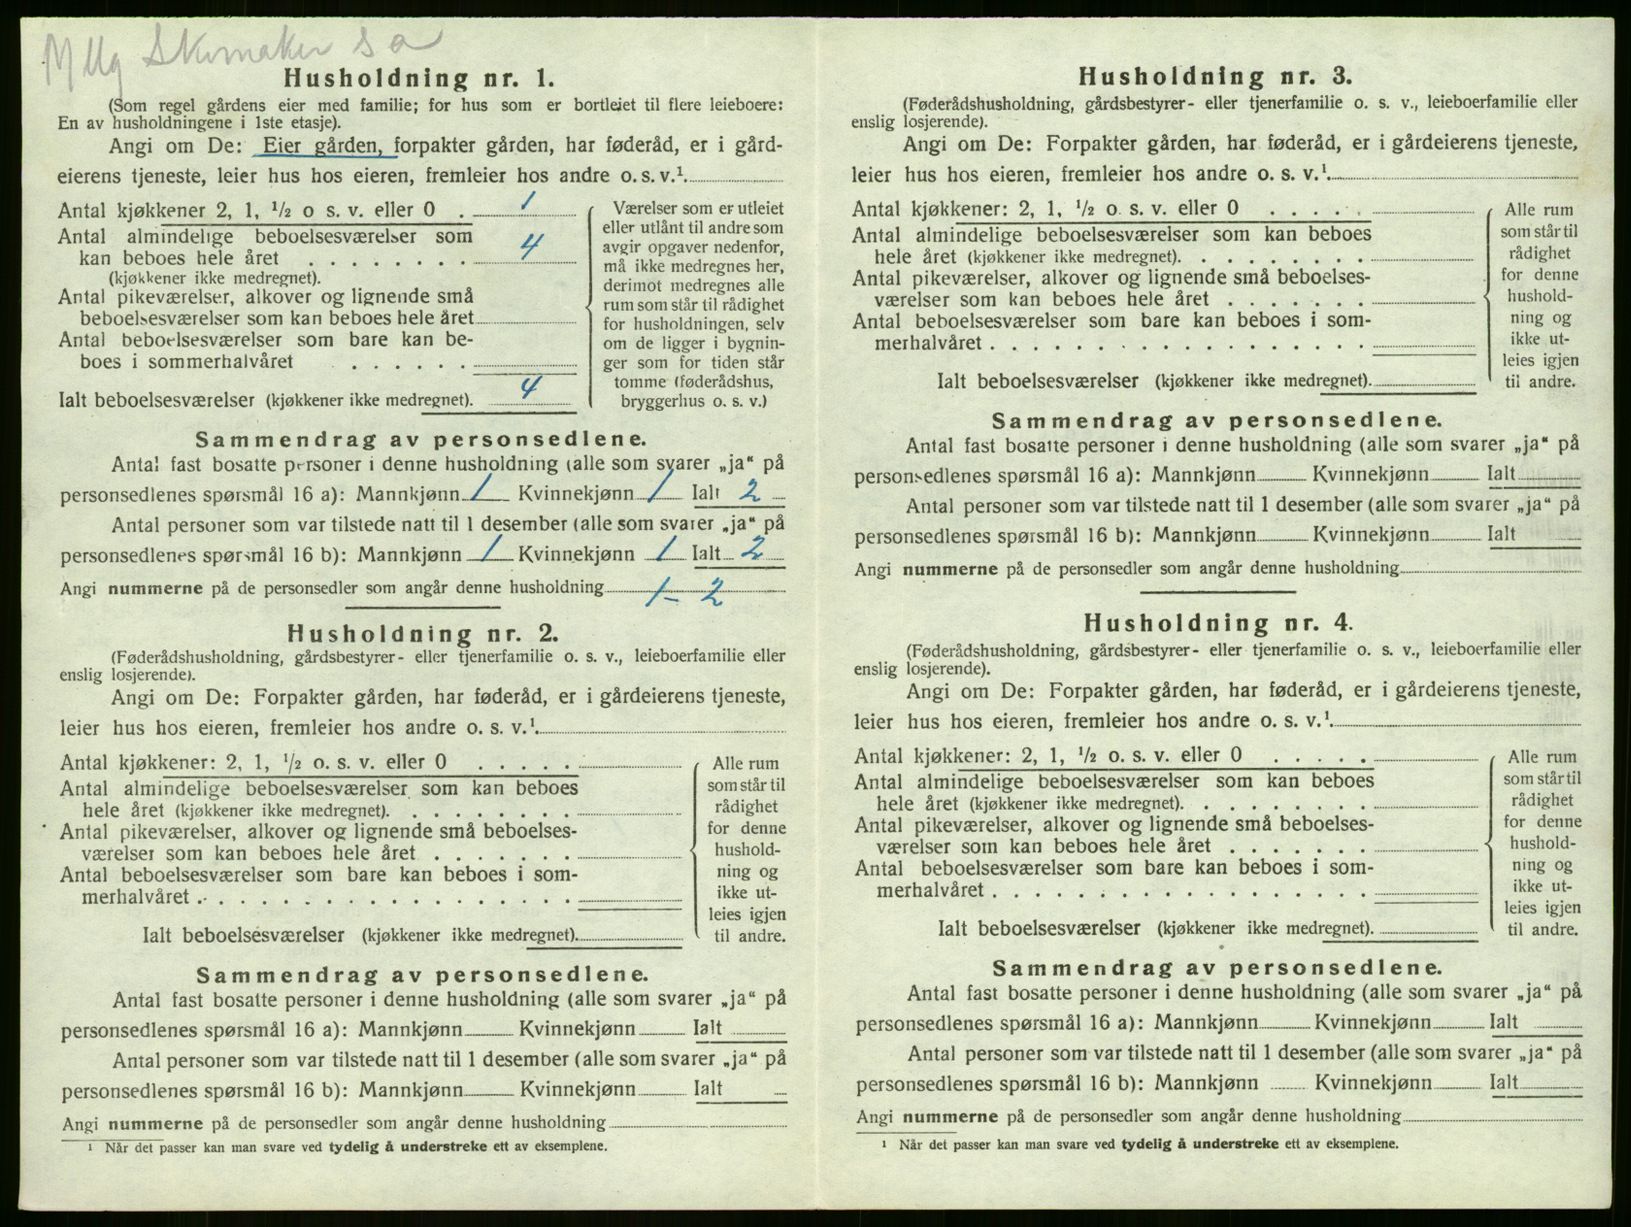 Skomaker s a
Husholdning nr. 1.
(Som regel gårdens eier med familie; for hus som er bortleiet til flere leieboere:
En av husholdningene i 1ste etasje).
Angi om De: Eier gården, forpakter gården, har føderåd, er i gård-
eierens tjeneste, leier hus hos eieren, fremleier hos andre o. s. v.¹
Antal kjøkkener 2, 1, ½ o s. v. eller 0 . 1
Antal almindelige beboelsesværelser som
kan beboes hele året . . . . . . . . 4
(kjøkkener ikke medregnet).
Antal pikeværelser, alkover og lignende små
beboelsesværelser som kan beboes hele året
Antal beboelsesværelser som bare kan be-
boes i sommerhalvåret . . . . . .
Ialt beboelsesværelser (kjøkkener ikke medregnet). 4
Værelser som er utleiet
eller utlånt til andre som
avgir opgaver nedenfor,
må ikke medregnes her,
derimot medregnes alle
rum som står til rådighet
for husholdningen, selv
om de ligger i bygnin-
ger som for tiden står
tomme (føderådshus,
bryggerhus o. s. v.)
Sammendrag av personsedlene.
Antal fast bosatte personer i denne husholdning (alle som svarer „ja“ på
personsedlenes spørsmål 16 a): Mannkjønn 1 Kvinnekjønn 1 Ialt 2
Antal personer som var tilstede natt til 1 desember (alle som svarer „ja“ på
personsedlenes spørsmål 16 b): Mannkjønn 1 Kvinnekjønn 1 Ialt 2
Angi nummerne på de personsedler som angår denne husholdning 1 - 2
Husholdning nr. 2.
(Føderådshusholdning, gårdsbestyrer- eller tjenerfamilie o. s. v., leieboerfamilie eller
enslig losjerende).
Angi om De: Forpakter gården, har føderåd, er i gårdeierens tjeneste,
leier hus hos eieren, fremleier hos andre o. s. v.¹
Antal kjøkkener: 2, 1, ½ o. s. v. eller 0 . . . . .
Antal almindelige beboelsesværelser som kan beboes
hele året (kjøkkener ikke medregnet). . . . . . . . .
Antal pikeværelser, alkover og lignende små beboelses-
værelser som kan beboes hele året . . . . . . .
Antal beboelsesværelser som bare kan beboes i som-
merhalvåret . . . . . . . . . . . . . . . . . .
Ialt beboelsesværelser (kjøkkener ikke medregnet).
Alle rum
som står til
rådighet
for denne
hushold-
ning og
ikke ut-
leies igjen
til andre.
Sammendrag av personsedlene.
Antal fast bosatte personer i denne husholdning (alle som svarer „ja“ på
personsedlenes spørsmål 16 a): Mannkjønn Kvinnekjønn Ialt
Antal personer som var tilstede natt til 1 desember (alle som svarer „ja“ på
personsedlenes spørsmål 16 b): Mannkjønn Kvinnekjønn Ialt
Angi nummerne på de personsedler som angår denne husholdning
¹ Når det passer kan man svare ved tydelig å understreke ett av eksemplene.
Husholdning nr. 3.
(Føderådshusholdning, gårdsbestyrer- eller tjenerfamilie o. s. v., leieboerfamilie eller
enslig losjerende).
Angi om De: Forpakter gården, har føderåd, er i gårdeierens tjeneste,
leier hus hos eieren, fremleier hos andre o. s. v.¹
Antal kjøkkener: 2, 1, ½ o. s. v. eller 0 . . . . .
Antal almindelige beboelsesværelser som kan beboes
hele året (kjøkkener ikke medregnet). . . . . . . . .
Antal pikeværelser, alkover og lignende små beboelses-
værelser som kan beboes hele året . . . . . . .
Antal beboelsesværelser som bare kan beboes i som-
merhalvåret . . . . . . . . . . . . . . . . . .
Ialt beboelsesværelser (kjøkkener ikke medregnet).
Alle rum
som står til
rådighet
for denne
hushold-
ning og
ikke ut-
leies igjen
til andre.
Sammendrag av personsedlene.
Antal fast bosatte personer i denne husholdning (alle som svarer „ja“ på
personsedlenes spørsmål 16 a): Mannkjønn Kvinnekjønn Ialt
Antal personer som var tilstede natt til 1 desember (alle som svarer „ja“ på
personsedlenes spørsmål 16 b): Mannkjønn Kvinnekjønn Ialt
Angi nummerne på de personsedler som angår denne husholdning
Husholdning nr. 4.
(Føderådshusholdning, gårdsbestyrer- eller tjenerfamilie o. s. v., leieboerfamilie eller
enslig losjerende).
Angi om De: Forpakter gården, har føderåd, er i gårdeierens tjeneste,
leier hus hos eieren, fremleier hos andre o. s. v.¹
Antal kjøkkener: 2, 1, ½ o. s. v. eller 0 . . . . .
Antal almindelige beboelsesværelser som kan beboes
hele året (kjøkkener ikke medregnet). . . . . . . . .
Antal pikeværelser, alkover og lignende små beboelses-
værelser som kan beboes hele året . . . . . . .
Antal beboelsesværelser som bare kan beboes i som-
merhalvåret . . . . . . . . . . . . . . . . . .
Ialt beboelsesværelser (kjøkkener ikke medregnet).
Alle rum
som står til
rådighet
for denne
hushold-
ning og
ikke ut-
leies igjen
til andre.
Sammendrag av personsedlene.
Antal fast bosatte personer i denne husholdning (alle som svarer „ja“ på
personsedlenes spørsmål 16 a): Mannkjønn Kvinnekjønn Ialt
Antal personer som var tilstede natt til 1 desember (alle som svarer „ja“ på
personsedlenes spørsmål 16 b): Mannkjønn Kvinnekjønn Ialt
Angi nummerne på de personsedler som angår denne husholdning
¹ Når det passer kan man svare ved tydelig å understreke ett av eksemplene.